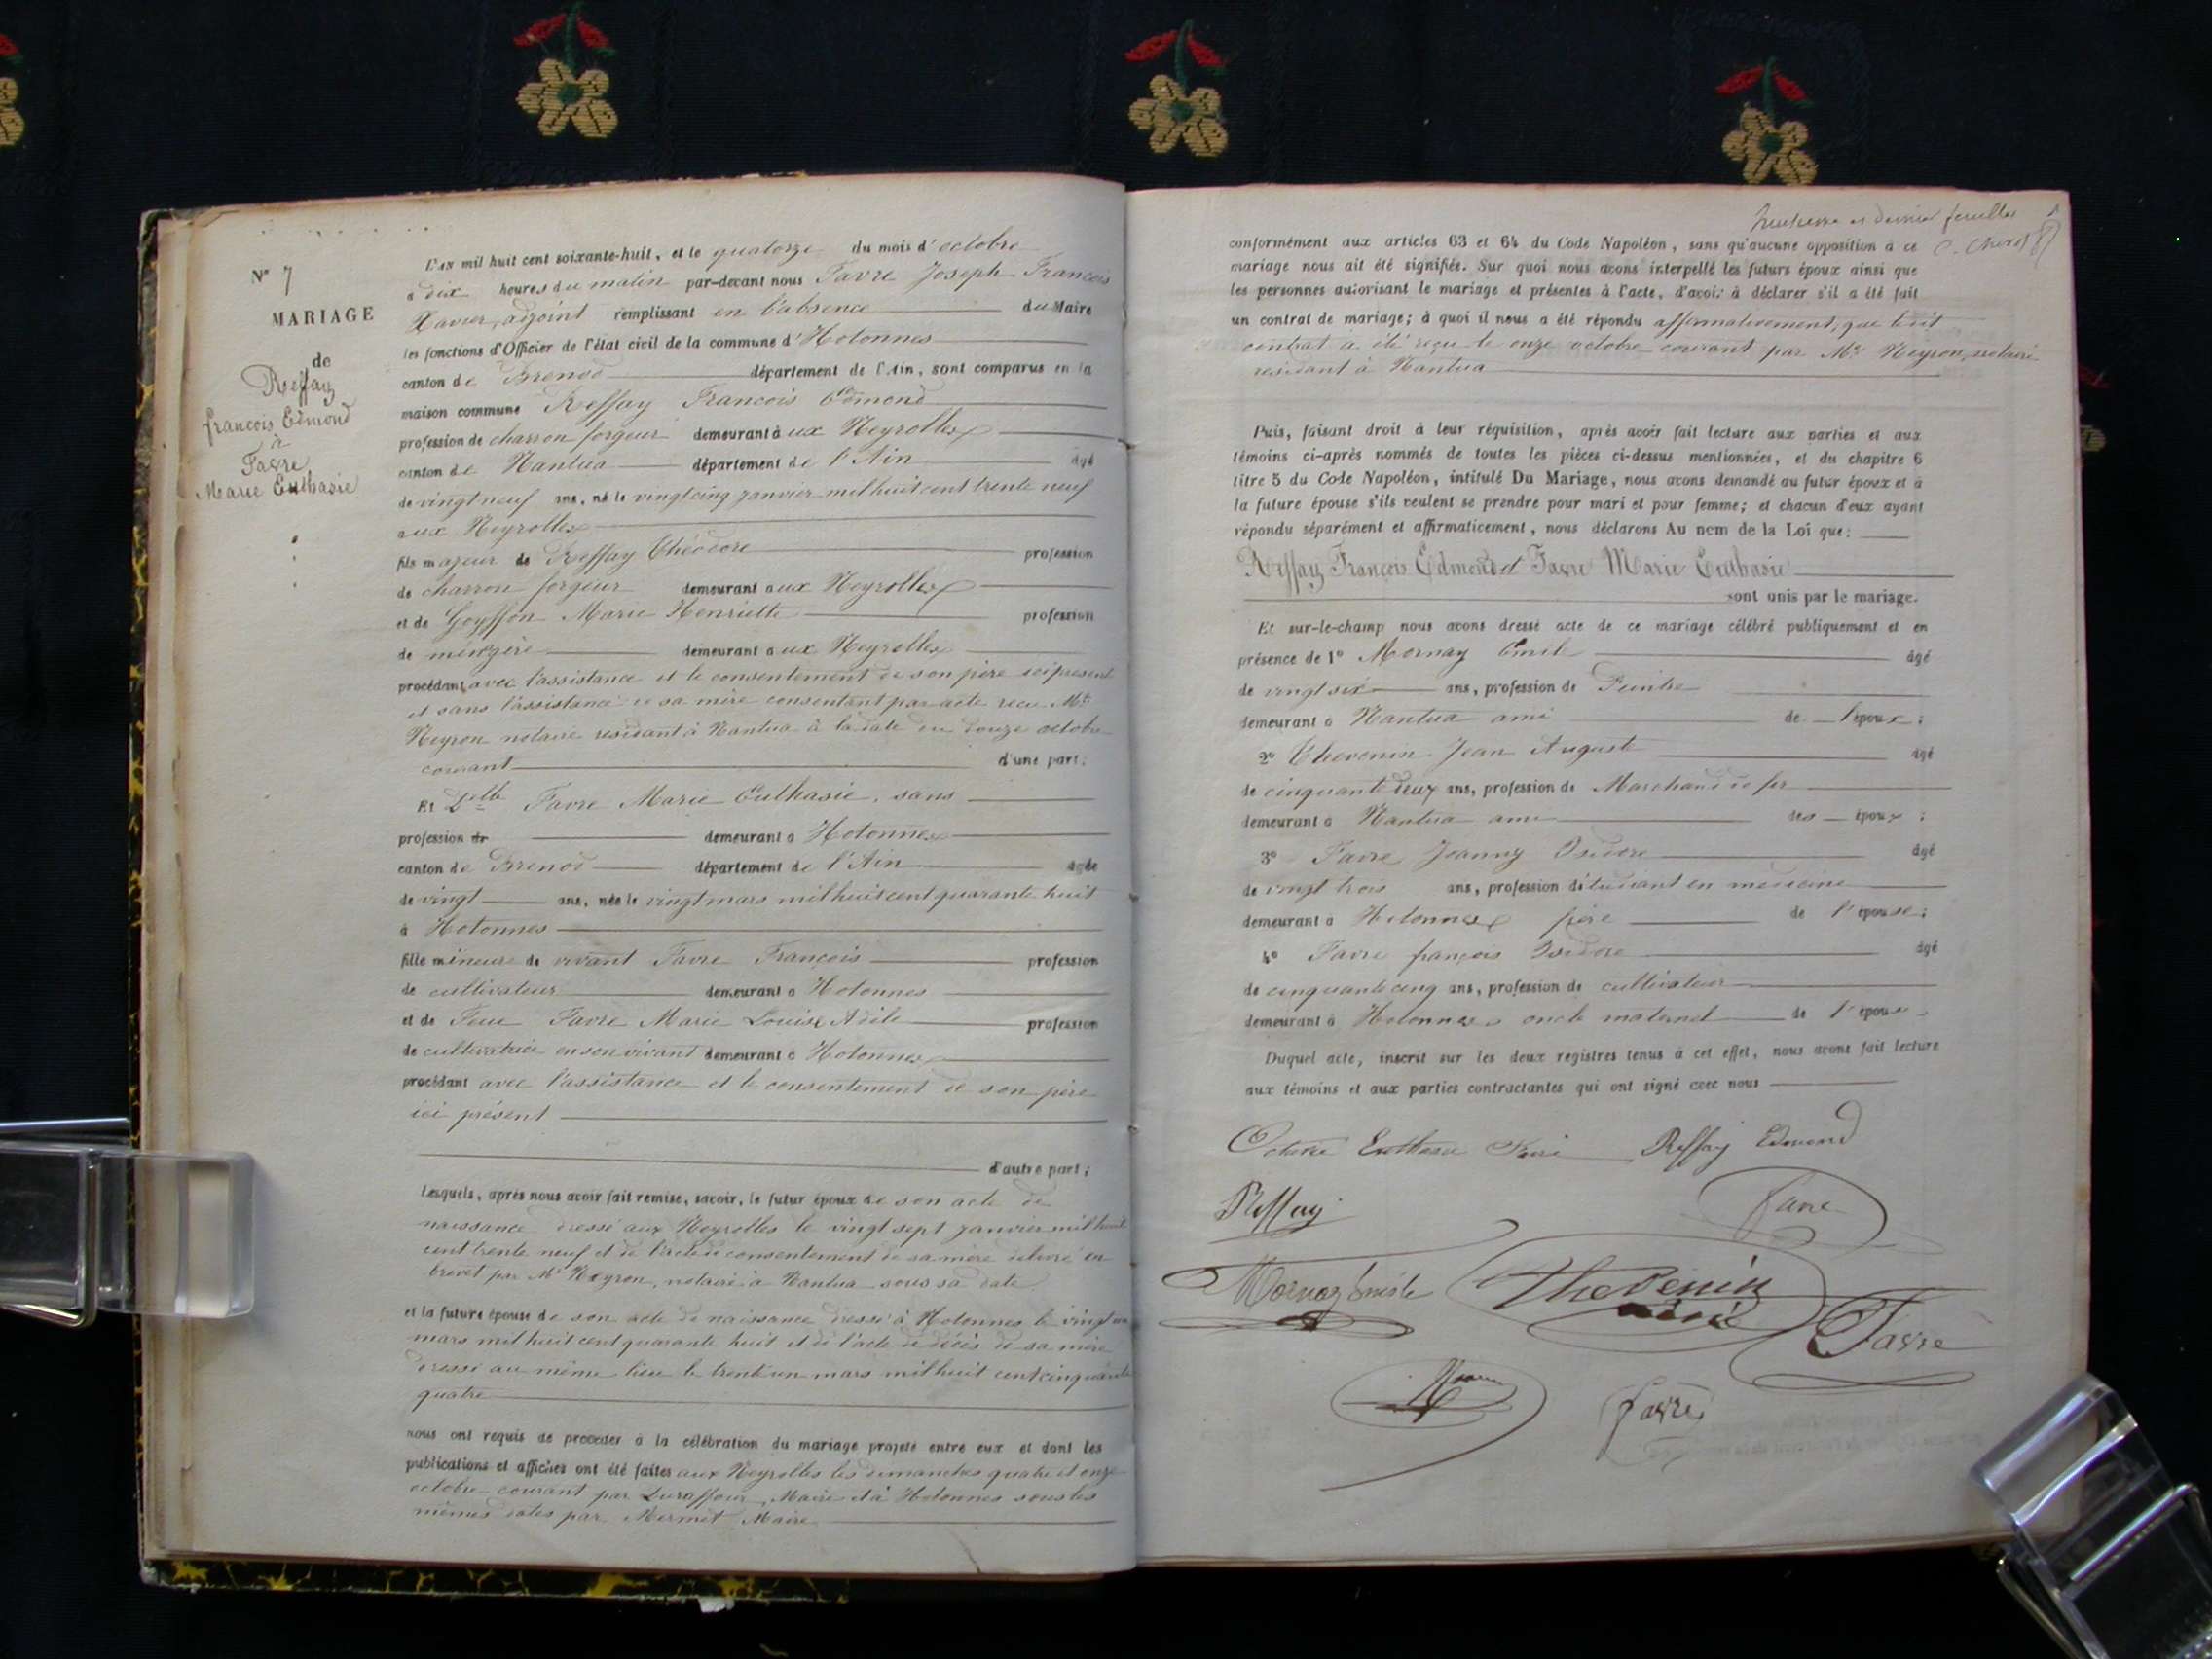 N° 7
MARIAGE
de
Reffay
françois Edmond
à
Favre
Marie Eulhasie
L'an mil huit cent soixante-huit, et le quatorze du mois d'octobre
à dix heures du matin par-devant nous Favre Joseph François
Xavier, adjoint remplissant en l'absence du Maire
les fonctions d'Officier de l'état civil de la commune d'Hotonnes
canton de Brenod département de l'Ain, sont comparus en la
maison commune Reffay François Edmond
profession de charron forgeur demeurant aux Neyrolles
canton de Nantua département de l'Ain âgé
de vingt neuf ans, né le vingt cinq janvier mil huit cent trente neuf
aux Neyrolles
fils majeur de Reffay Théodore profession
de charron forgeur demeurant aux Neyrolles
et de Goyffon Marie Henriette profession
de ménagère demeurant aux Neyrolles
procédant avec l'assistance et le consentement de son père ici présent
et sans l'assistance de sa mère consentant par acte reçu Me
Neyron notaire résidant à Nantua à la date du douze octobre
courant d'une part;
Et Delle Favre Marie Eulhasie, sans
profession de demeurant à Hotonnes
canton de Brenod département de l'Ain âgée
de vingt ans, née le vingt mars mil huit cent quarante huit
à Hotonnes
fille mineure de vivant Favre François profession
de cultivateur demeurant à Hotonnes
et de Feue Favre Marie Louise Adèle profession
de cultivatrice en son vivant demeurant à Hotonnes
procédant avec l'assistance et le consentement de son père
ici présent
d'autre part;
Lesquels, après nous avoir fait remise, savoir, le futur époux de son acte de
naissance dressé aux Neyrolles le vingt sept janvier mil huit
cent trente neuf et de l'acte de consentement de sa mère délivré en
brevet par Me Neyron, notaire à Nantua sous sa date
et la future épouse de son acte de naissance dressé à Hotonnes le vingt un
mars mil huit cent quarante huit et de l'acte de décès de sa mère
dressé au même lieu le trente un mars mil huit cent cinquante
quatre
nous ont requis de procéder à la célébration du mariage projeté entre eux et dont les
publications et affiches ont été faites aux Neyrolles les dimanches quatre et onze
octobre courant par Duraffour, Maire et à Hotonnes sous les
mêmes dates par Mermet Maire
et dernier feuillet
conformément aux articles 63 et 64 du Code Napoléon, sans qu'aucune opposition à ce
mariage nous ait été signifiée. Sur quoi nous avons interpellé les futurs époux ainsi que
les personnes autorisant le mariage et présentes à l'acte, d'avoir à déclarer s'il a été fait
un contrat de mariage; à quoi il nous a été répondu affirmativement, que ledit
contrat a été reçu le onze octobre courant par Me Neyron, notaire
résidant à Nantua
Puis, faisant droit à leur réquisition, après avoir fait lecture aux parties et aux
témoins ci-après nommés de toutes les pièces ci-dessus mentionnées, et du chapitre 6
titre 5 du Code Napoléon, intitulé Du Mariage, nous avons demandé au futur époux et à
la future épouse s'ils veulent se prendre pour mari et pour femme; et chacun d'eux ayant
répondu séparément et affirmativement, nous déclarons Au nom de la Loi que:
Reffay François Edmond et Favre Marie Eulhasie
sont unis par le mariage.
Et sur-le-champ nous avons dressé acte de ce mariage célébré publiquement et en
présence de 1° Mornay Emile âgé
de vingt six ans, profession de Peintre
demeurant à Nantua ami de l'époux;
2° Thevenin Jean Auguste âgé
de cinquante deux ans, profession de Marchand de fer
demeurant à Nantua ami des époux;
3° Favre Joanny Isidore âgé
de vingt trois ans, profession d'étudiant en médecine
demeurant à Hotonnes frère de l'épouse;
4° Favre françois Isidore âgé
de cinquante cinq ans, profession de cultivateur
demeurant à Hotonnes oncle maternel de l'épouse
Duquel acte, inscrit sur les deux registres tenus à cet effet, nous avons fait lecture
aux témoins et aux parties contractantes qui ont signé avec nous
Reffay Edmond
Reffay
Favre
Mornay Emile
Thevenin
aîné
Favre
favre